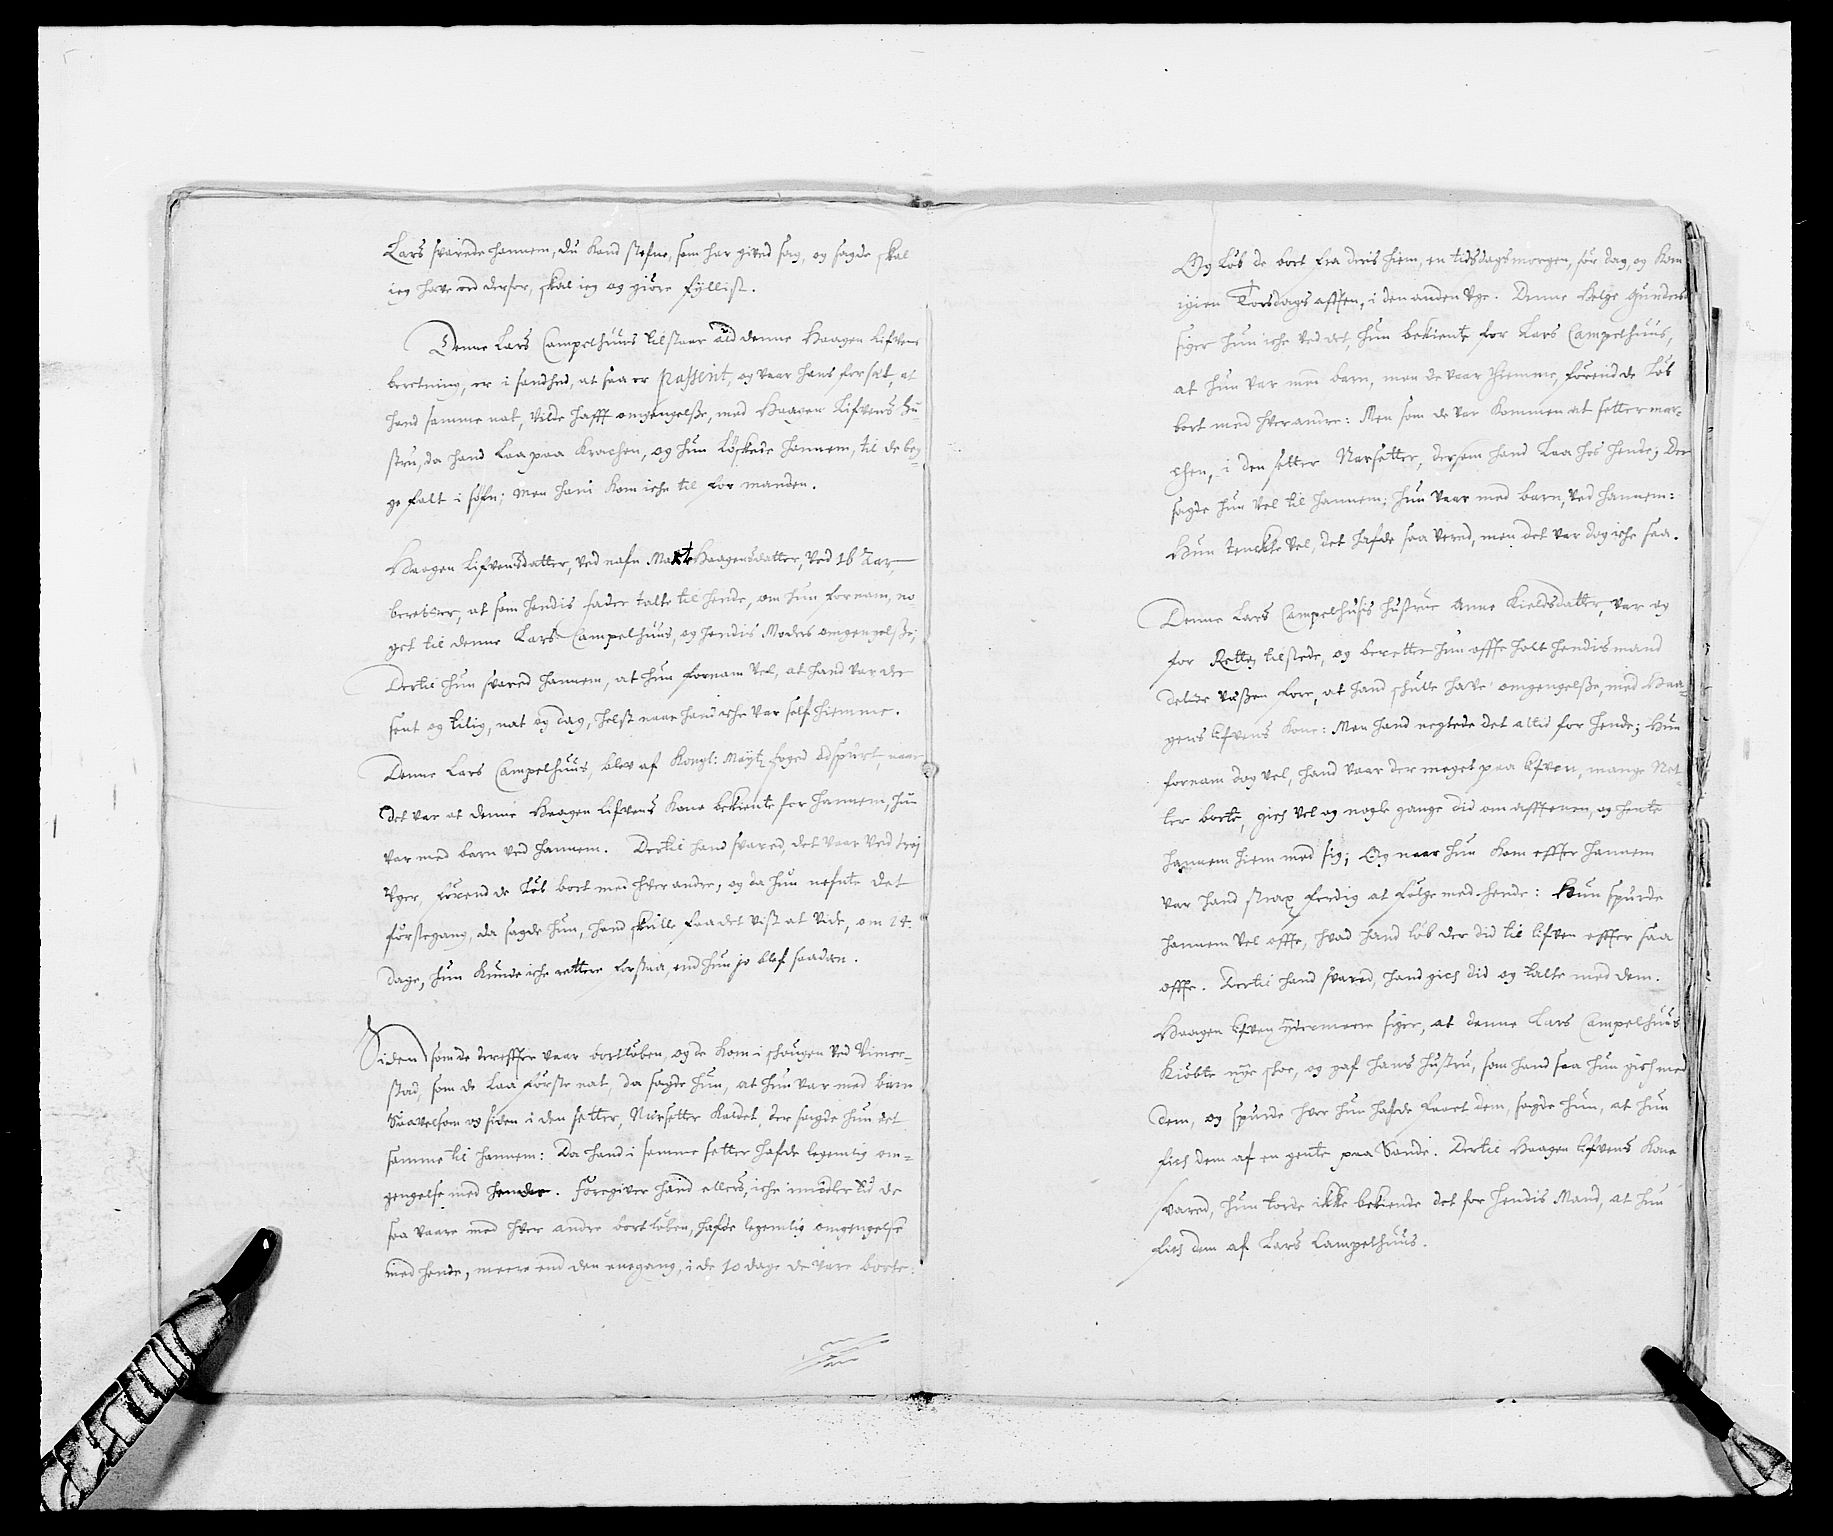 Lars svarede hannem, du kand stefne, som har gived sag, og sagde skal
ieg have ord derfor, skal ieg og giøre fyllist.
Denne Lars Campelhuus tilstaar ald denne Haagen Lifvens
beretning, er i sandhed, at saa er passerit, og vaar hans forsæt, at
hand samme nat, vilde hafft omgengelsse, med Haagen Lifvens hu-
stru, da hand laa paa krachen, og hun løskede hannem, til de beg-
ge falt i søfn; Men hand kom iche til for manden.
Haagen Lifvensdatter, ved nafn Marte Haagensdatter, ved 16 Aar,
beretter, at som hendis fader talte til hende, om hun fornam, no-
get til denne Lars Campelhuus, og hendis Moders omgengelsse,
Dertil hun svared hannem, at hun fornam vel, at hand var der
sent og tilig, nat og dag, helst naar hand iche var self hiemme.
Denne Lars Campelhuus, blev af Kongl: Mayts foged adspurt, naar
det var at denne Haagen Lifvens Kone bekiente for hannem, hun
var med barn ved hannem. Dertil hand svared, det vaar ved trej
Uger, førend de løb bort med hver andre, og da hun nefnte det
førstegang, da sagde hun, hand skulle faa det vist at vide, om 14.
dage, hun kunde iche rettere forstaa, end hun jo blef saadan.
Siden som de dereffter vaar bortløben, og de kom i schougen ved Vimer-
stad, som de laa første nat, da sagde hun, at hun var med barn
Saavelsom og siden i den setter, Narsetter kaldet, der sagde hun det
samme til hannem: Da hand i samme setter hafde legemlig om-
gengelse med hende. Foregiver hand ellers, iche imidler tid de
saa vaare med hver andre bortløben, hafde legemlig omgengelse
med hende, meere end den enegang, i de 10 dage de vare borte:
Og løb de bort fra deris hiem, en tidsdags morgen, før dag, og kom
igien Torsdags afften, i den anden Uge. Denne Helge Gundersd
siger hun iche ved det, hun bekiente for Lars Campelhuus,
at hun var med barn, men de vaar hiemme, førend de løb
bort med hverandre: Men som de var kommen at setter mar-
chen, i den setter Narsetter, dersom hand laa hos hende, Der
sagde hun vel til hannem; hun vaar med barn, ved hannem:
Hun tenckte vel, det hafde saa vered, men det var dog iche saa.
Denne Lars Campelhusis hustrue Anne Kieldsdatter, var og
for Retten tilstede, og berette hun offte holt hendis mand
delde vassen fore, at hand schulle have omgengelsse, med Haa-
gens Lifvens Kone: Men hand negtede det altid for hende; Hun
fornam dog vel, hand vaar der meget paa Lifven, mange Net-
ter borte, gich vel og nogle gange did om afftenen, og hente
hannem hiem med sig; Og naar hun kom effter hannem
var hand strax ferdig at følge med hende: Hun spurde
hannem vel offte, hvad hand løb der did til Lifven effter saa
offte. Dertil hand svared, hand gich did og talte med dem.
Haagen Lifven ydermeere siger, at denne Lars Campelhuus
kiøbte nye skoe, og gaf hans hustru, som hand saa hun gich med
dem, og spurde hvor hun hafde faaet dem, sagde hun, at hun
fich dem af en gente paa Sande. Dertil Haagen Lifvens Kone
svared, hun torde ikke bekiende det for hendis Mand, at hun
fich dem af Lars Campelhuus.